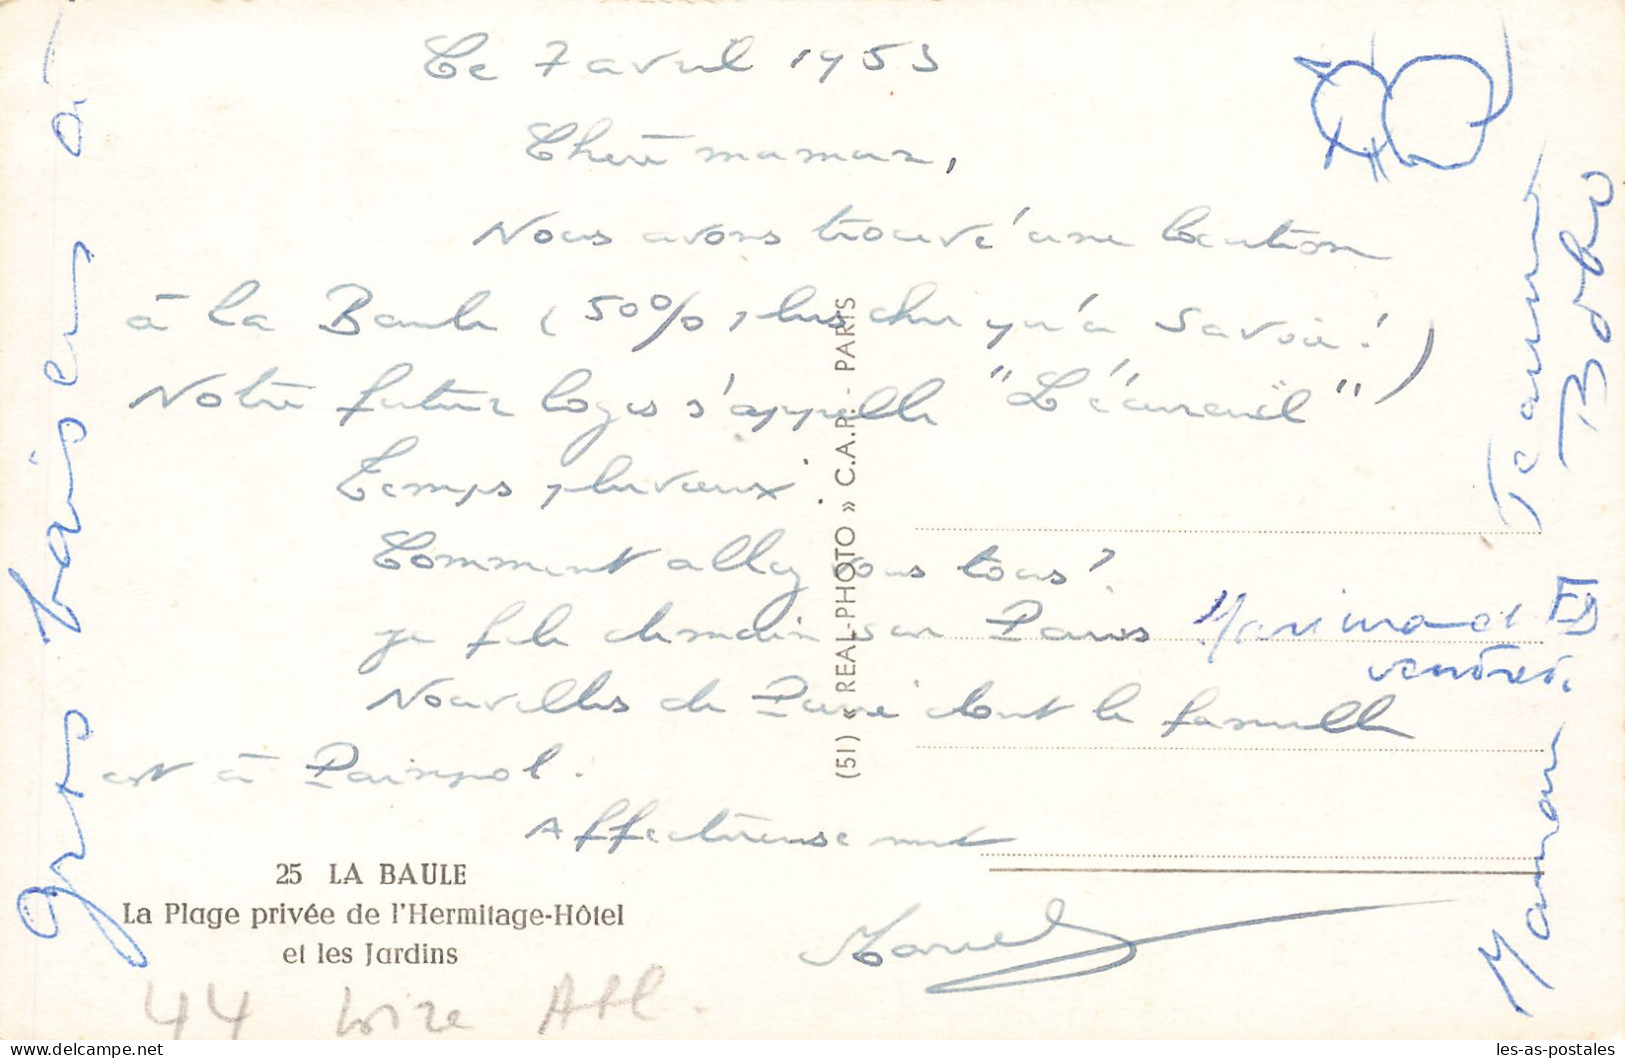 Le 7 avril 1953
Chère maman,
Nous avons trouvé une location
à la Baule (50% plus cher qu'à Savoie!)
Notre futur logis s'appelle "L'écureuil"
Temps pluvieux.
Comment allez vous tous?
je file demain sur Paris
Nouvelles de dont la famille
est à Paimpol.
Affectueusement
Marcel
gros baisers à
Maman
Bobo
vendredi
(51) « REAL-PHOTO » C.A.P. - PARIS
25 LA BAULE
La Plage privée de l'Hermitage-Hôtel
et les Jardins
44 Loire Atl.
les-as-postales